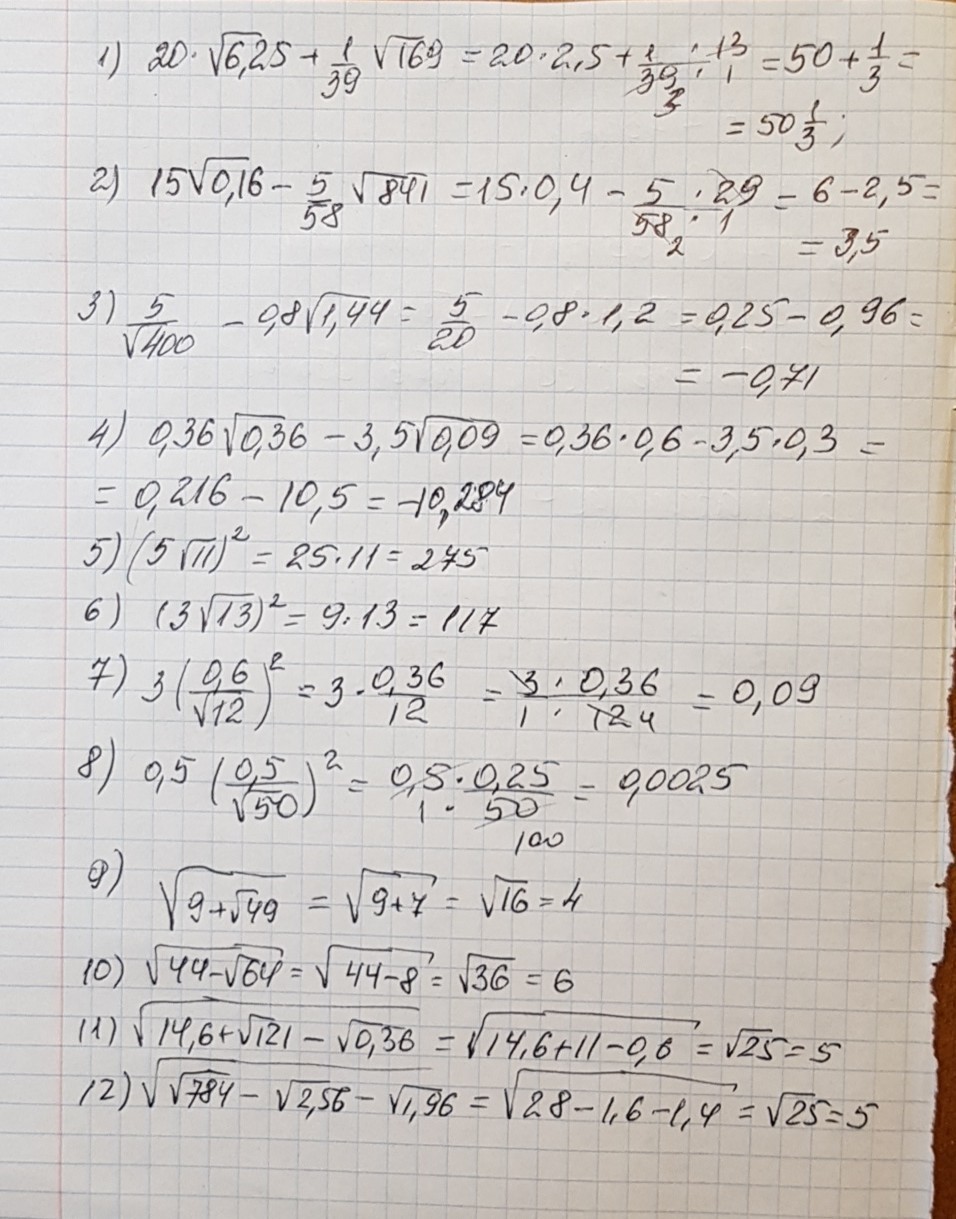 1) 20·√6,25 + 1/39 √169 = 20·2,5 + (1·13)/(39·1) 3 = 50 + 1/3 =
= 50 1/3;
2) 15√0,16 − 5/58 √841 = 15·0,4 − (5·29)/(58·1) 2 = 6 − 2,5 =
= 3,5
3) 5/√400 − 0,8√1,44 = 5/20 − 0,8·1,2 = 0,25 − 0,96 =
= −0,71
4) 0,36√0,36 − 3,5√0,09 = 0,36·0,6 − 3,5·0,3 =
= 0,216 − 10,5 = −10,284
5) (5√11)² = 25·11 = 275
6) (3√13)² = 9·13 = 117
7) 3(0,6/√12)² = 3·0,36/12 = (3·0,36)/(1·12) 4 = 0,09
8) 0,5(0,5/√50)² = (0,5·0,25)/(1·50) 100 = 0,0025
9) √(9+√49) = √(9+7) = √16 = 4
10) √(44−√64) = √(44−8) = √36 = 6
11) √(14,6+√121 − √0,36) = √(14,6+11−0,6) = √25 = 5
12) √(√784 − √2,56 − √1,96) = √(28−1,6−1,4) = √25 = 5